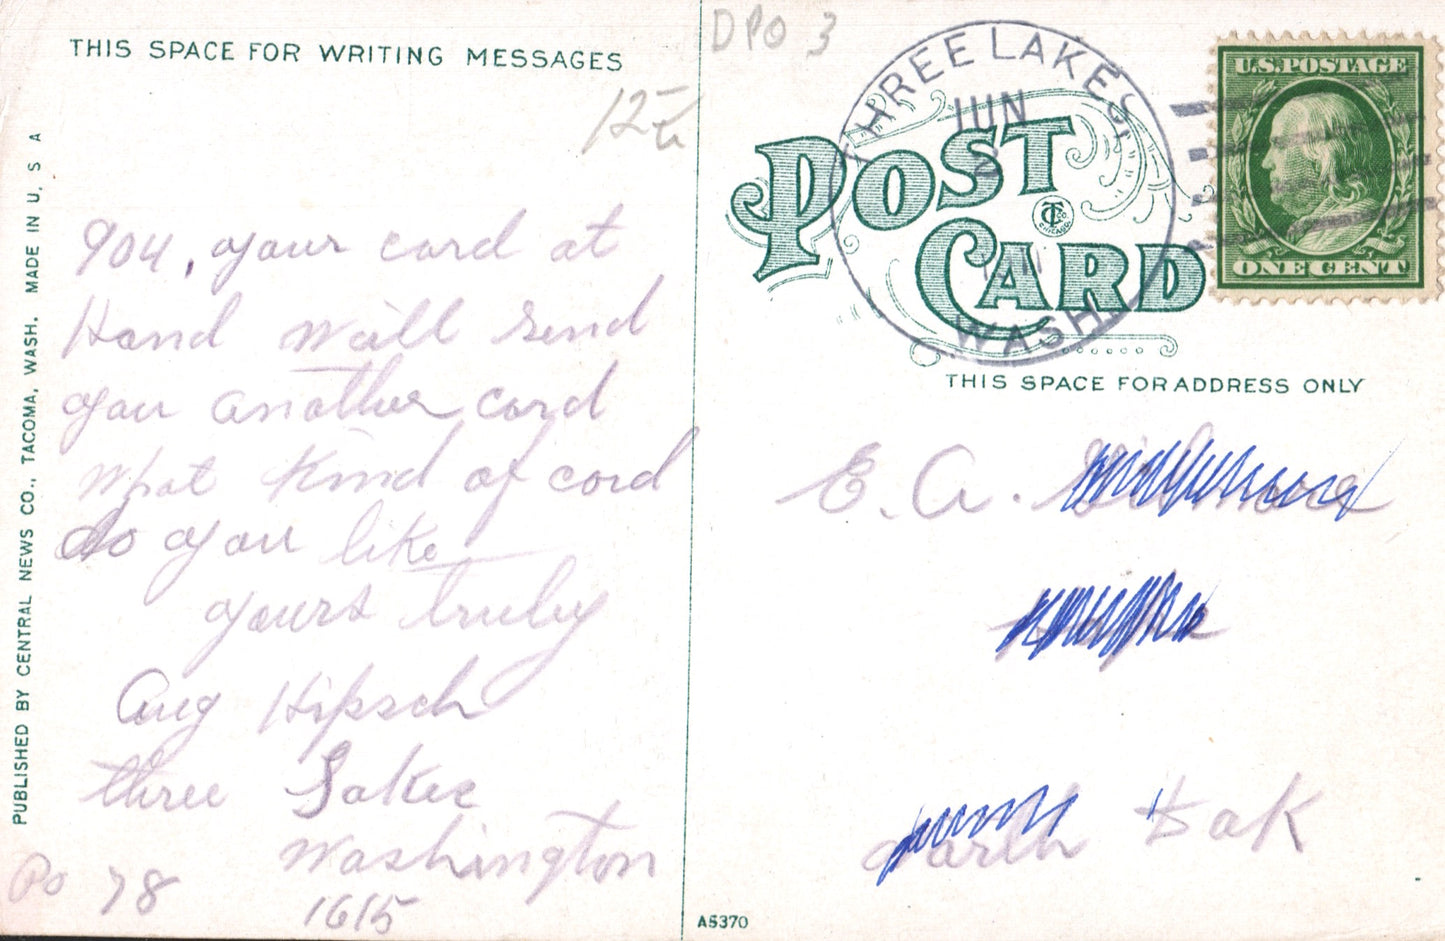 THIS SPACE FOR WRITING MESSAGES
PUBLISHED BY CENTRAL NEWS CO., TACOMA, WASH. MADE IN U. S A
904, your card at
Hand will send
you another card
What Kind of card
do you like
yours truley
Aug Hipsch
three Lakes
Washington
Po 78
1615
DPO 3
THREE LAKES
JUN
WASH.
POST
CARD
U.S. POSTAGE
ONE CENT
THIS SPACE FOR ADDRESS ONLY
E. A.
Dak
A5370